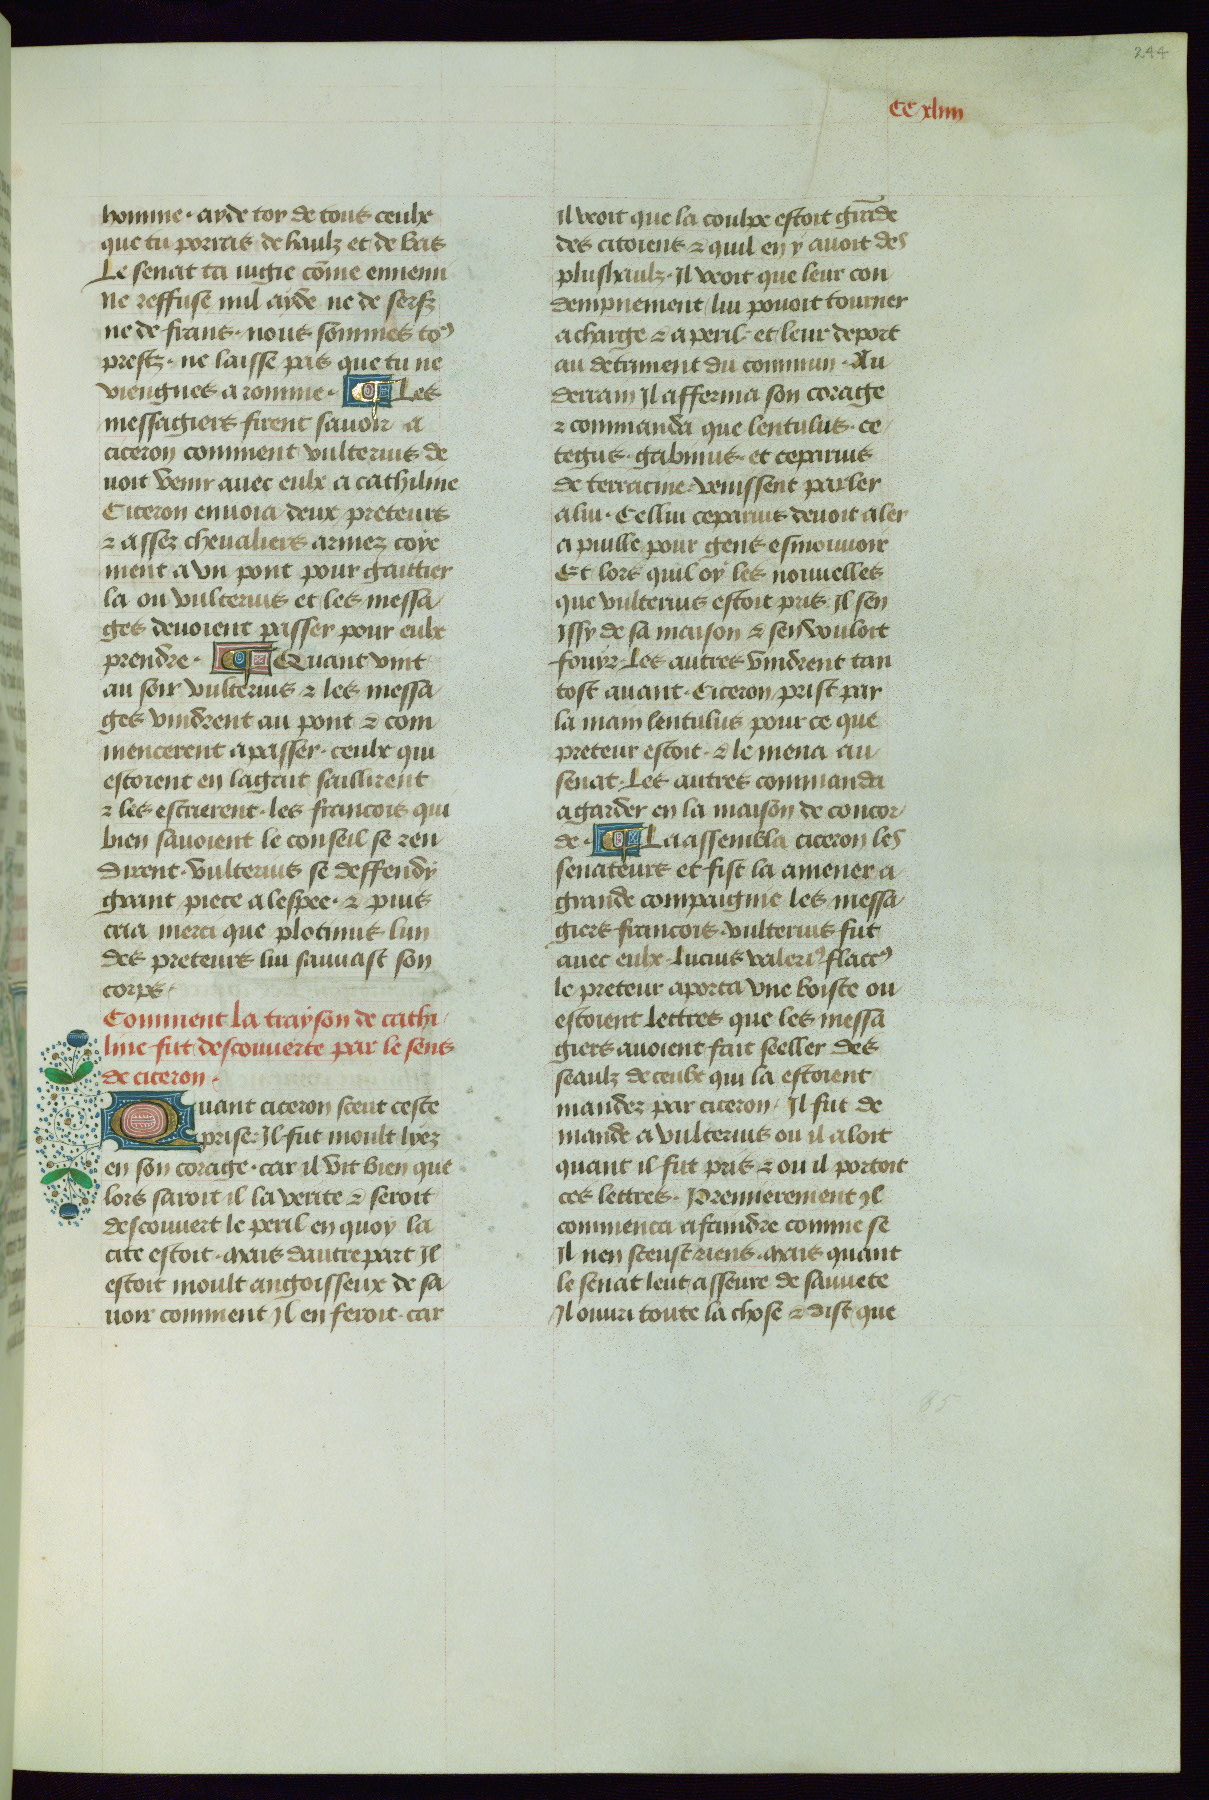 244
CC xliiii
homme · ayde toy de tous ceulx
que tu porras de haulz et de bas
Le senat ta iugie cōme ennemi
Ne reffuse nul ayde ne de serfz
ne de frans · nous sommes toꝰ
prestz · ne laisse pas que tu ne
viengnes a romme · ¶ Les
messagiers firent sauoir a
ciceron comment vulterius de
uoit venir auec eulx a cathiline
Ciceron enuoia deux preteurs
⁊ assez cheualiers armez coye
ment a vn pont pour gaittier
la ou vulterius et les messa
ges deuoient passer pour eulx
prendre · ¶ Quant vint
au soir vulterius ⁊ les messa
ges vindrent au pont ⁊ com
mencerent a passer · ceulx qui
estoient en lagait saillirent
⁊ les escrierent · les francois qui
bien sauoient le conseil se ren
dirent · vulterius se deffendy
grant piece a lespee · ⁊ puis
cria merci que plotinus lun
des preteurs lui sauuast son
corps ·
Comment la trayson de cathi
line fut descouuerte par le sens
de ciceron ·
Quant ciceron sceut ceste
prise · Il fut moult lyez
en son corage · car il vit bien que
lors saroit il la verite ⁊ seroit
descouuert le peril en quoy la
cite estoit · Mais dautre part Il
estoit moult angoisseux de sa
uoir comment Il en feroit · car
il veoit que la coulpe estoit grāde
des citoiens ⁊ quil en y auoit des
plushaulz · Il veoit que leur con
dempnement lui pouoit tourner
a charge ⁊ a peril et leur deport
au detriment du commun · Au
derrain Il afferma son corage
⁊ commanda que lentulus · ce
tegus · gabinius · et ceparius
de terracine · venissent parler
a lui · Cellui ceparius deuoit aler
a puille pour gens esmouuoir
Et lors quil oy les nouuelles
que vulterius estoit pris Il sen
Issy de sa maison ⁊ sen vouloit
fouyr · Les autres vindrent tan
tost auant · Ciceron prist par
la main lentulus pour ce que
preteur estoit · ⁊ le mena au
senat · Les autres commanda
a garder en la maison de concor
de · ¶ La assembla ciceron les
senateurs et fist la amener a
grande compaignie les messa
giers francois · vulterius fut
auec eulx · Lucius valeriꝰ flaccꝰ
le preteur aporta vne boiste ou
estoient lettres que les messa
giers auoient fait seeller des
seaulz de ceulx qui la estoient
mandez par ciceron · Il fut de
mande a vulterius ou il aloit
quant il fut pris ⁊ ou il portoit
ces lettres · Premierement Il
commenca a faindre comme se
Il nen sceust riens · Mais quant
le senat leut asseure de sauuete
Il ouuri toute la chose ⁊ dist que